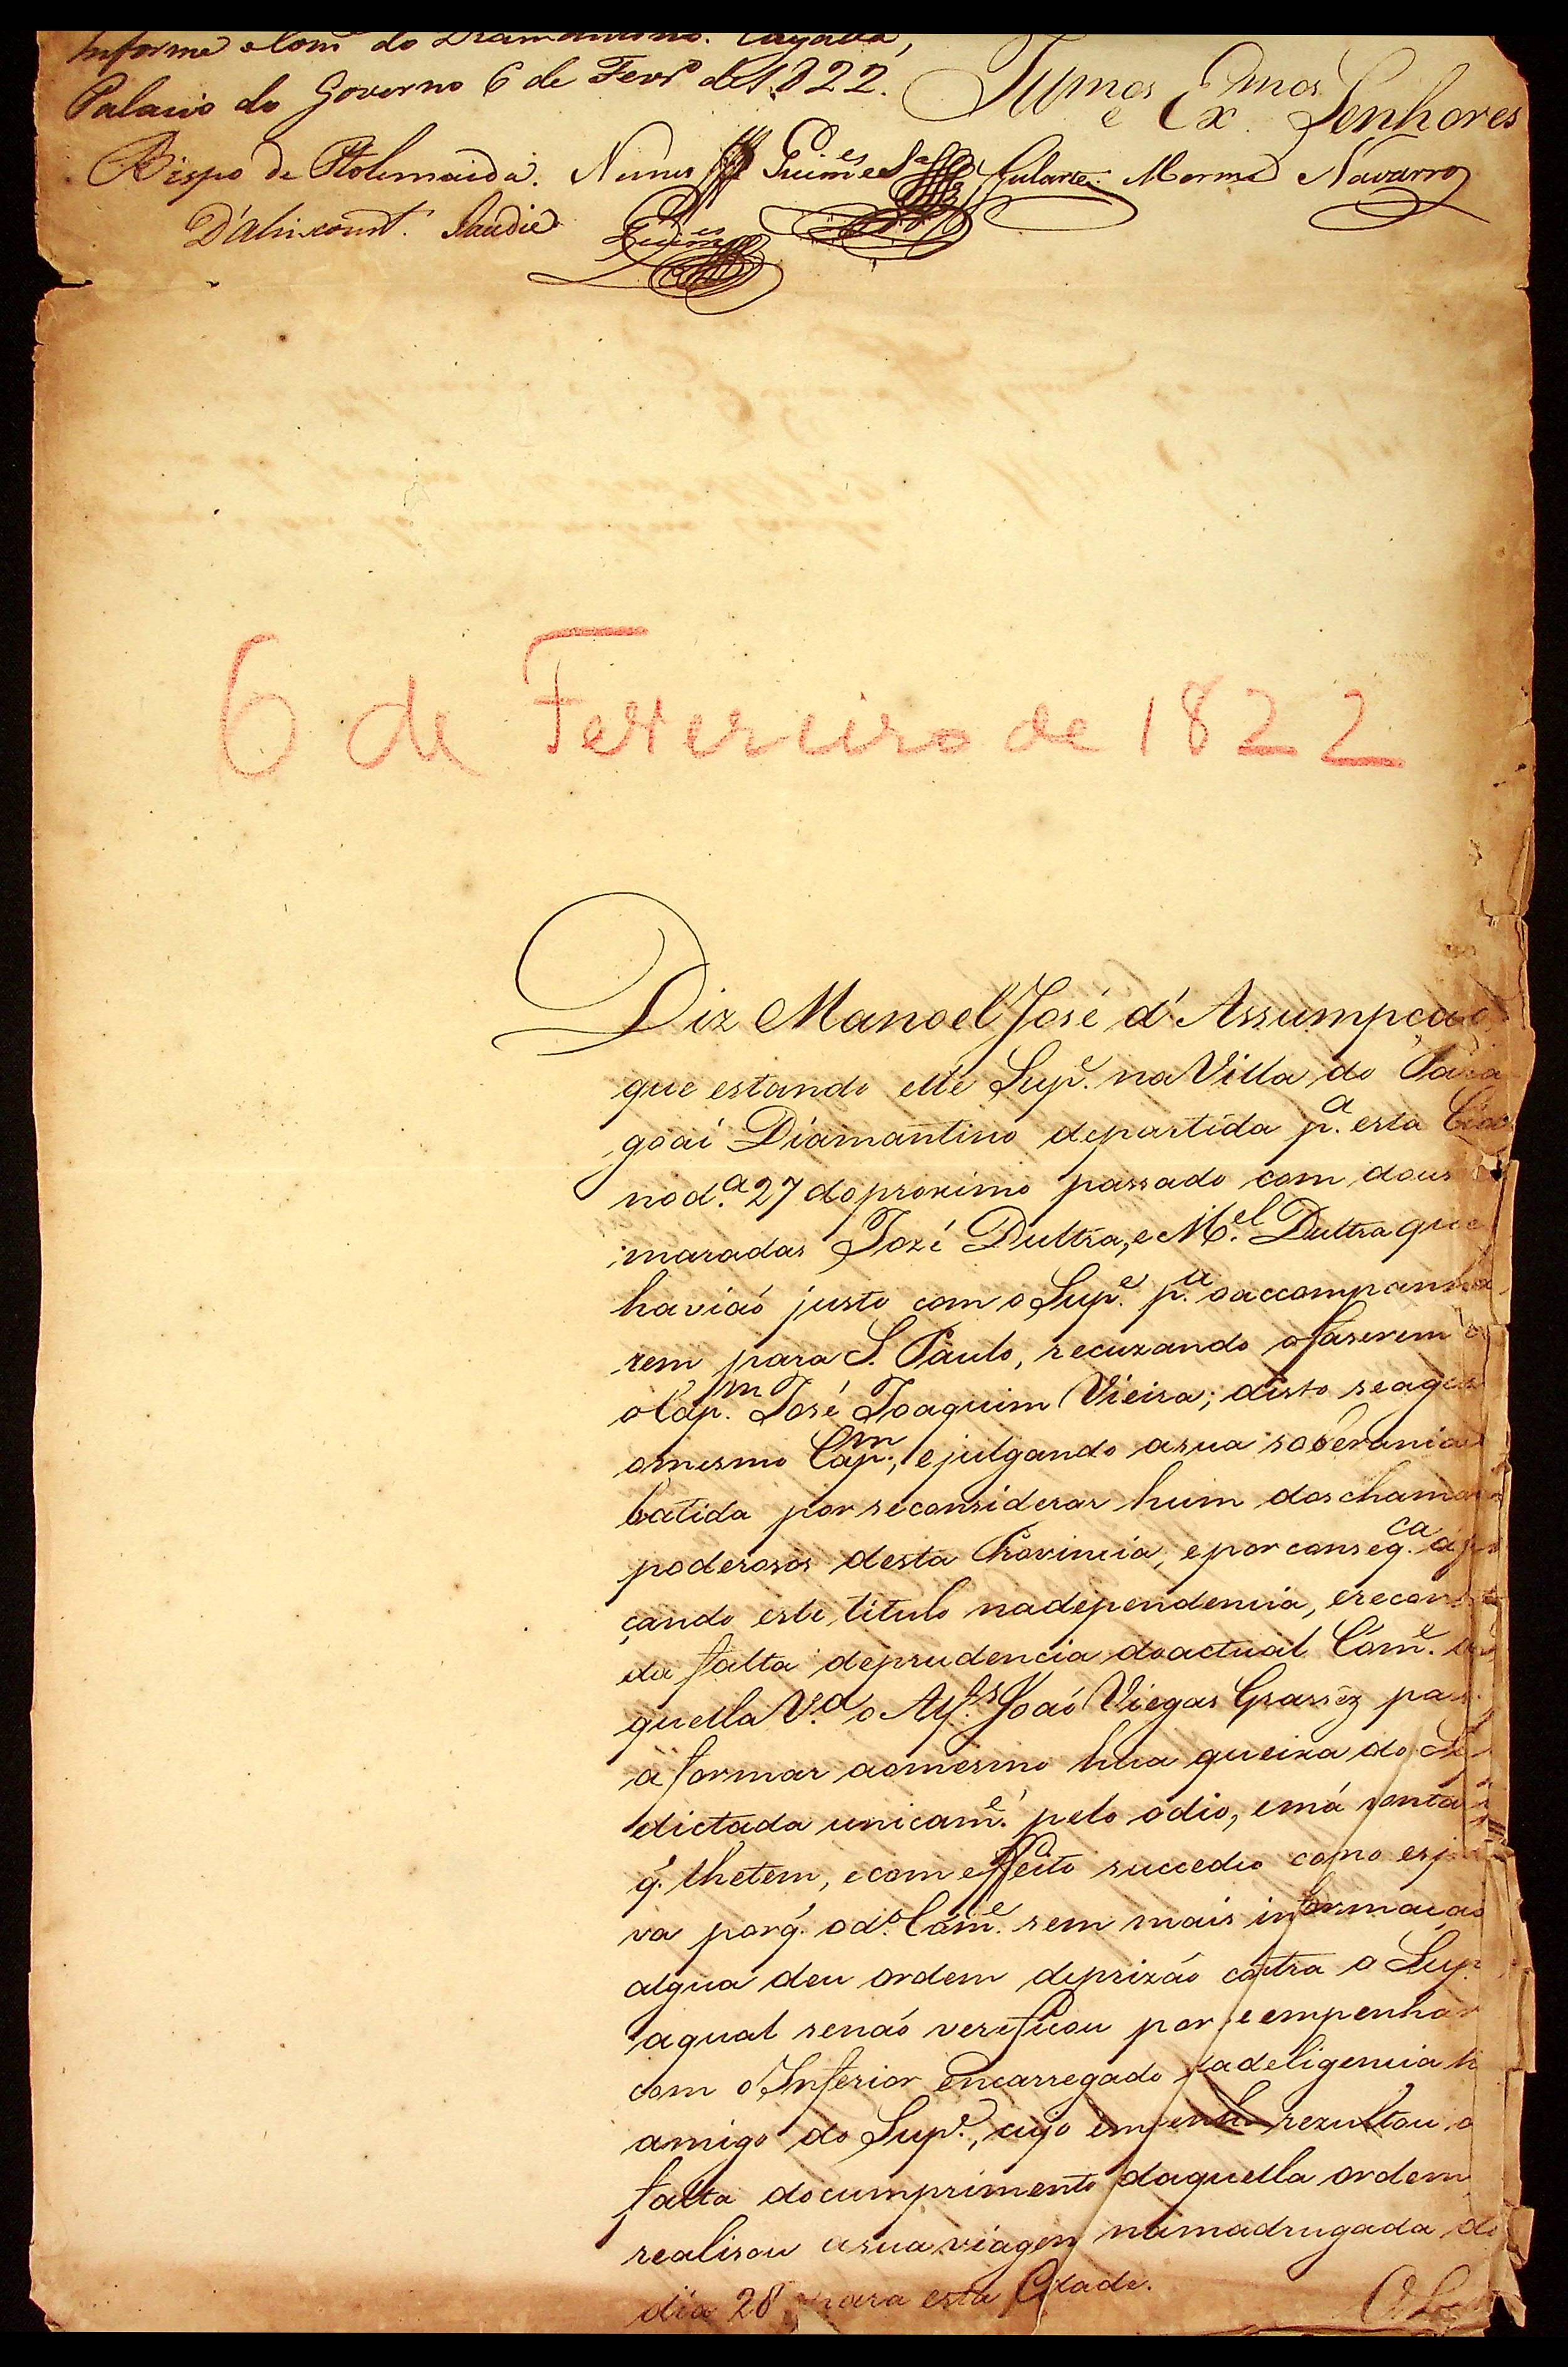 Informe o Com.e do Diamantino. Cuyabá,
Palacio do Governo 6 de Fevr.o de 1822.
Illmos e Exmos. Senhores
Bispo de Ptolemaida. Nunes Guim.es S.a Gularte. Navarro
D'Alincourt. Claudio
Guim.es
6 de Fevereiro de 1822
Diz Manoel José d'Assumpção
que estando elle Sup.e na Villa do Para
goai Diamantino departida p.a esta Cid
nod.a 27 doproximo passado com dous
maradas Jozé Dultra, e M.el Dultra que
havião justo com o Sup.e p.a oaccompanha
rem para S. Paulo, recuzando ofaserem
o Cap.m José Joaquim Vieira; disto se
omesmo Cap.m, ejulgando asua soberania
batida por seconsiderar hum dos chama
poderosos desta Provincia, epor conseq.ca
çando este titulo nadependencia, e
da falta deprudencia doactual Com.e
quella V.a o Alf.s João Viegas
a formar aomesmo hua queixa do
dictada unicam.e pelo odio, emá vonta
q. lhetem, ecom effeito succedeo como esp
va porq. od.o Com.e sem mais informação
algua deu ordem deprizão contra o Sup
aqual senão verificou por se empenhar
com o Inferior encarregado dadeligencia
amigo do Sup.e, cujo empenho rezultou a
falta documprimento daquella ordem
realisou asua viagem namadrugada do
dia 28 para esta Cidade.